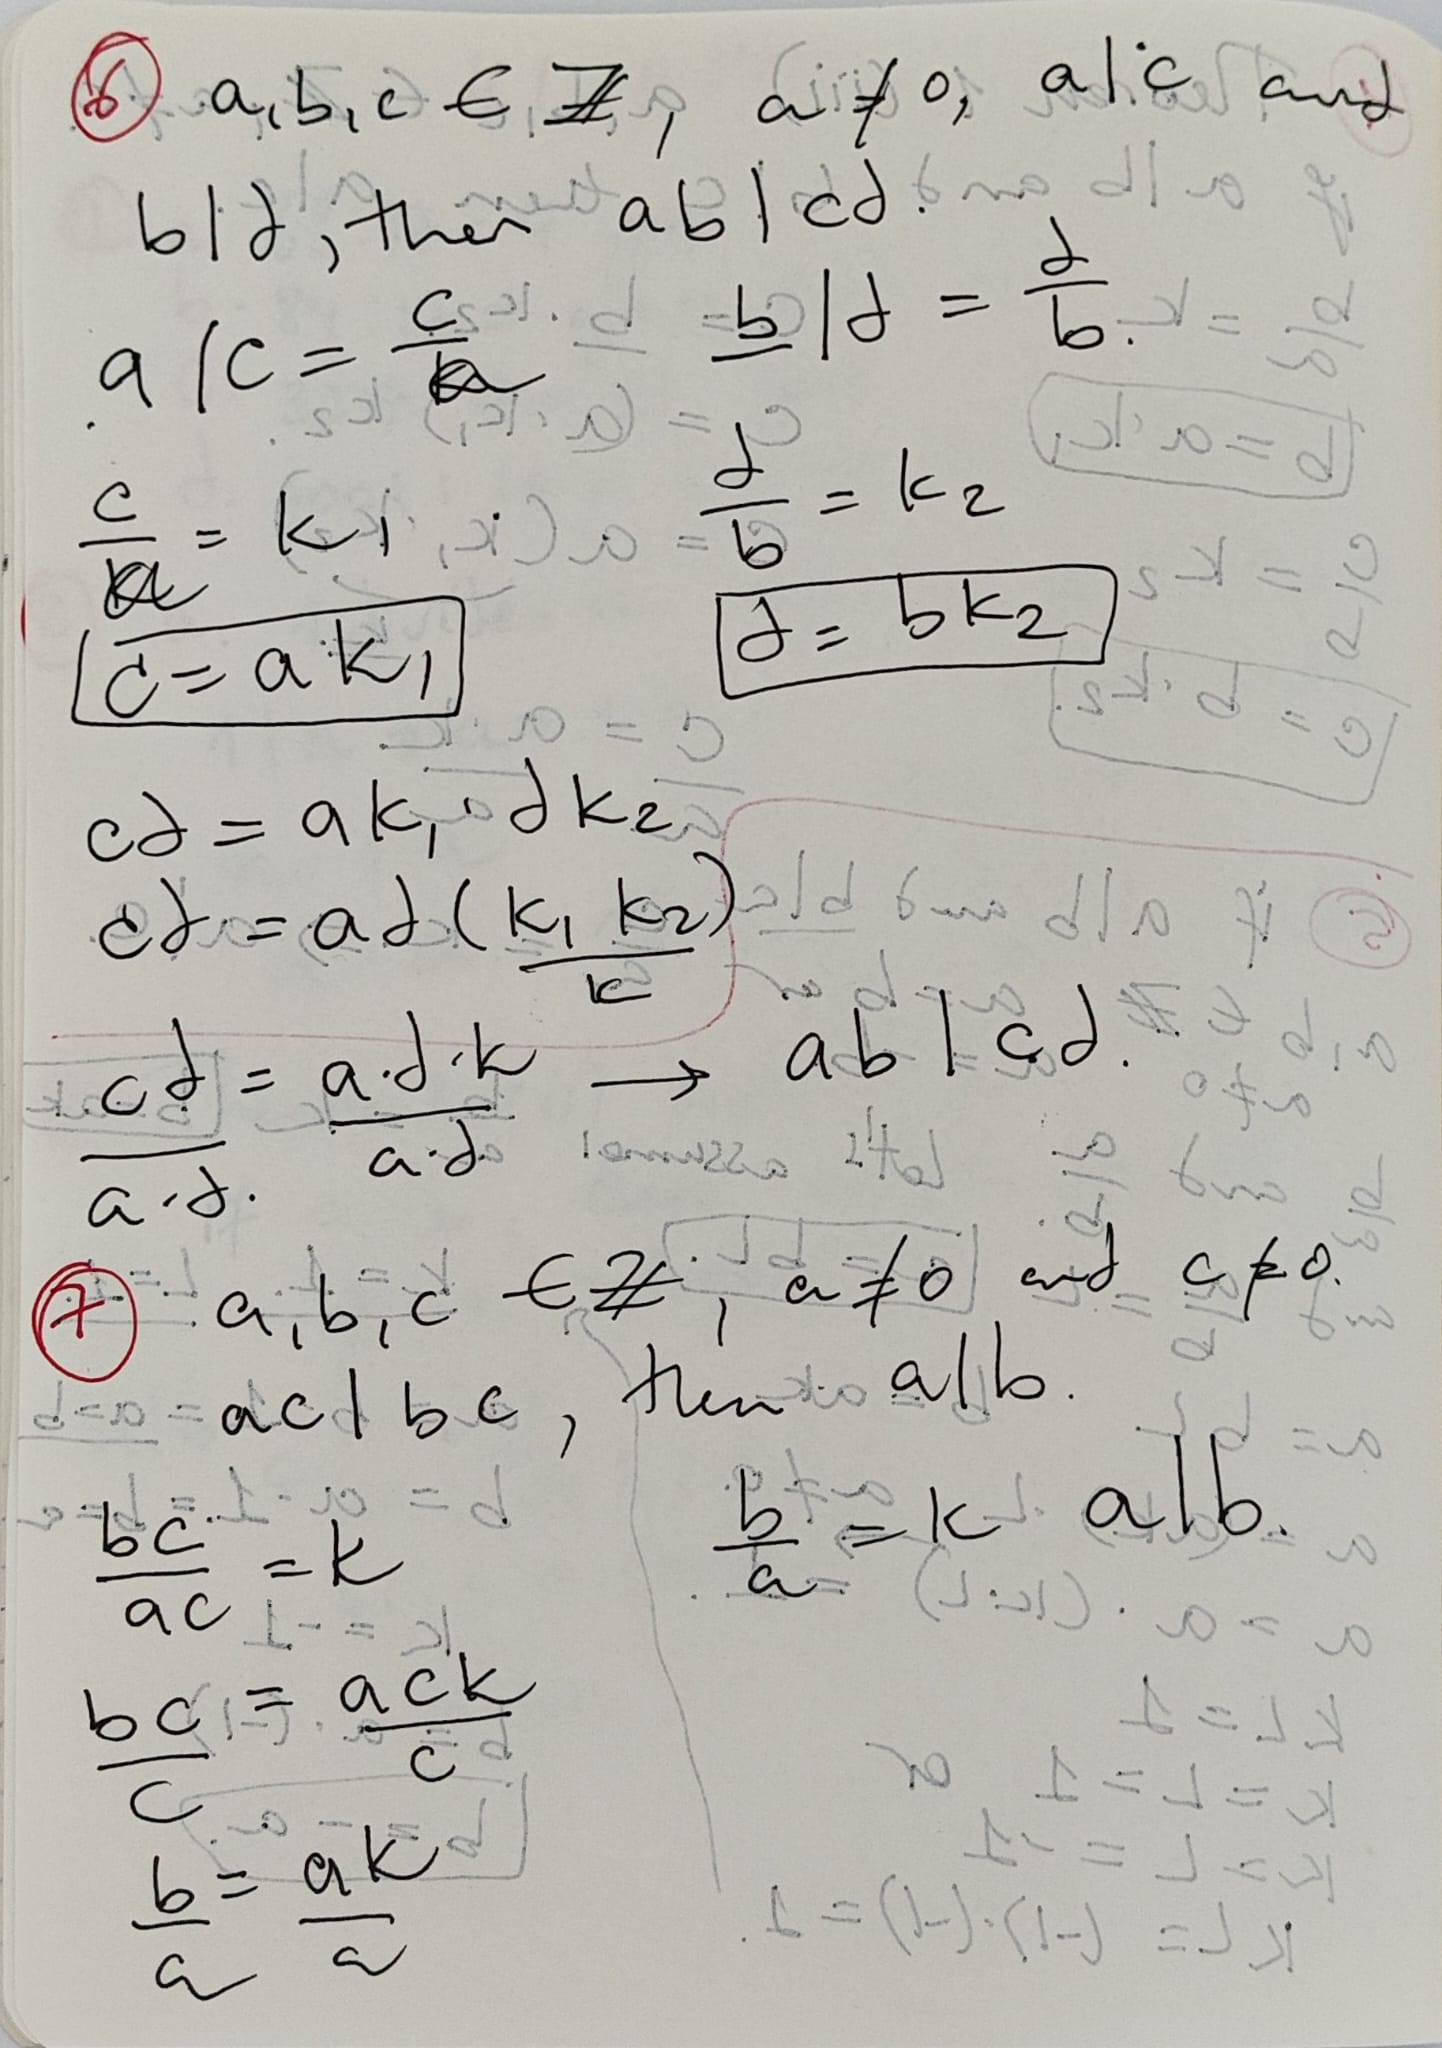 ⑥ a,b,c ∈ ℤ, a≠0, a|c and
b|d, then ab|cd.
a|c = c/a b|d = d/b.
c/a = k1 d/b = k2
c = a k1 d = bk2
cd = ak1 · dk2
cd = ad(k1 k2)
k
cd/a·d. = a·d·k/a·d → ab | cd.
⑦ a,b,c ∈ ℤ, a≠0 and c≠0.
ac|bc, then a|b.
bc/ac = k b/a = k a|b.
bc/c = ack/c
b/a = ak/a